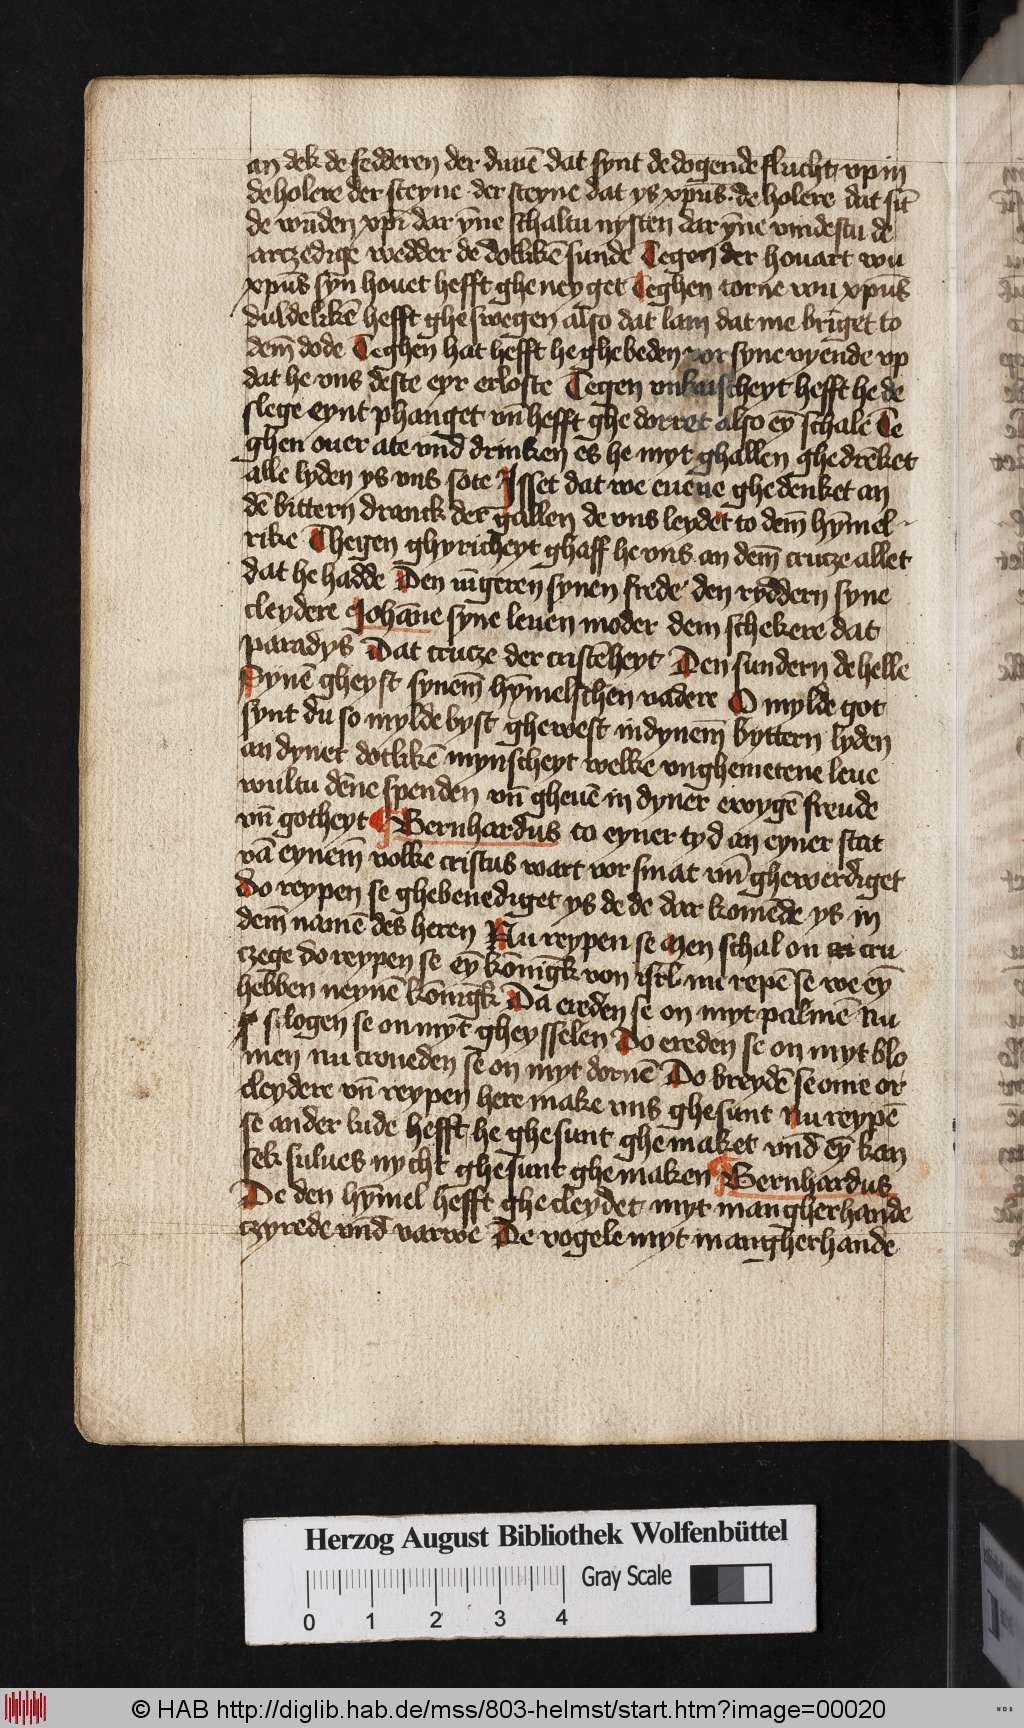 an dek de fedderen der duuē dat synt de dogende flucht vp in
de holere der steyne der steyne dat ys xp̄us de holere dat sīt
de wūden xpī dar ȳne schaltu nysten dar ȳne vindestu de
arczedige wedder de dotlikē sunde Tegen der houart wu
xp̄us syn houet hefft ghe neyget Teghen torne wu xp̄us
duldelikē hefft ghe swegen also dat lam dat me brīget to
dem̄ dode Teghen hat hefft he ghe beden vor syne vyende vp
dat he vns deste eyr erloste Tegen vnkuscheyt hefft he de
slege eynt phanget vn̄ hefft ghe dorret also eȳ schale Te
ghen ouer ate vnd drinken es he myt ghallen ghe drēket
alle lyden ys vns sote Isset dat we euene ghe denket an
dē bittern dranck der gallen de vns leydet to dem̄ hȳmel
rike Thegen ghyricheyt ghaff he vns an dem̄ crucze allet
dat he hadde Den iūgeren synen frede den ryddern syne
cleydere Johāne syne leuen moder dem schekere dat
paradys Dat crucze der cristēheyt Den sundern de helle
Synē gheyst synem̄ hȳmelschen vadere O mylde got
synt du so mylde byst ghewest in dynem̄ byttern lyden
an dyner dotlikē mynscheyt welke vnghemetene leue
wultu dēne spenden vn̄ gheuē in dyner ewygē freude
vn̄ gotheyt Bernhardus to eyner tyd an eyner stat
vā eynem̄ volke cristus wart vor smat vn̄ ghewerdiget
do reypen se ghebenediget ys de de dar komēde ys in
dem̄ namē des heren Nu reypen se men schal on cru
czege do reypen se eȳ kōnigk von isrl nu repē se we eȳ
hebben neynē kōnigk Da ereden se on myt palmē Nu
slogen se on myt gheysselen Do ereden se on myt blo
men nu croueden se on myt dornē Do breydē se ome or
cleydere vn̄ reypen here make vns ghesunt nu reypē
se ander lude hefft he ghesunt ghe maket vnd eȳ kan
sek sulues nycht ghesunt ghe maken Bernhardus
De den hȳmel hefft ghe cleydet myt mangherhande
czyrede vnd varwe De vogele myt mangherhande
Herzog August Bibliothek Wolfenbüttel
Gray Scale
0 1 2 3 4
© HAB http://diglib.hab.de/mss/803-helmst/start.htm?image=00020